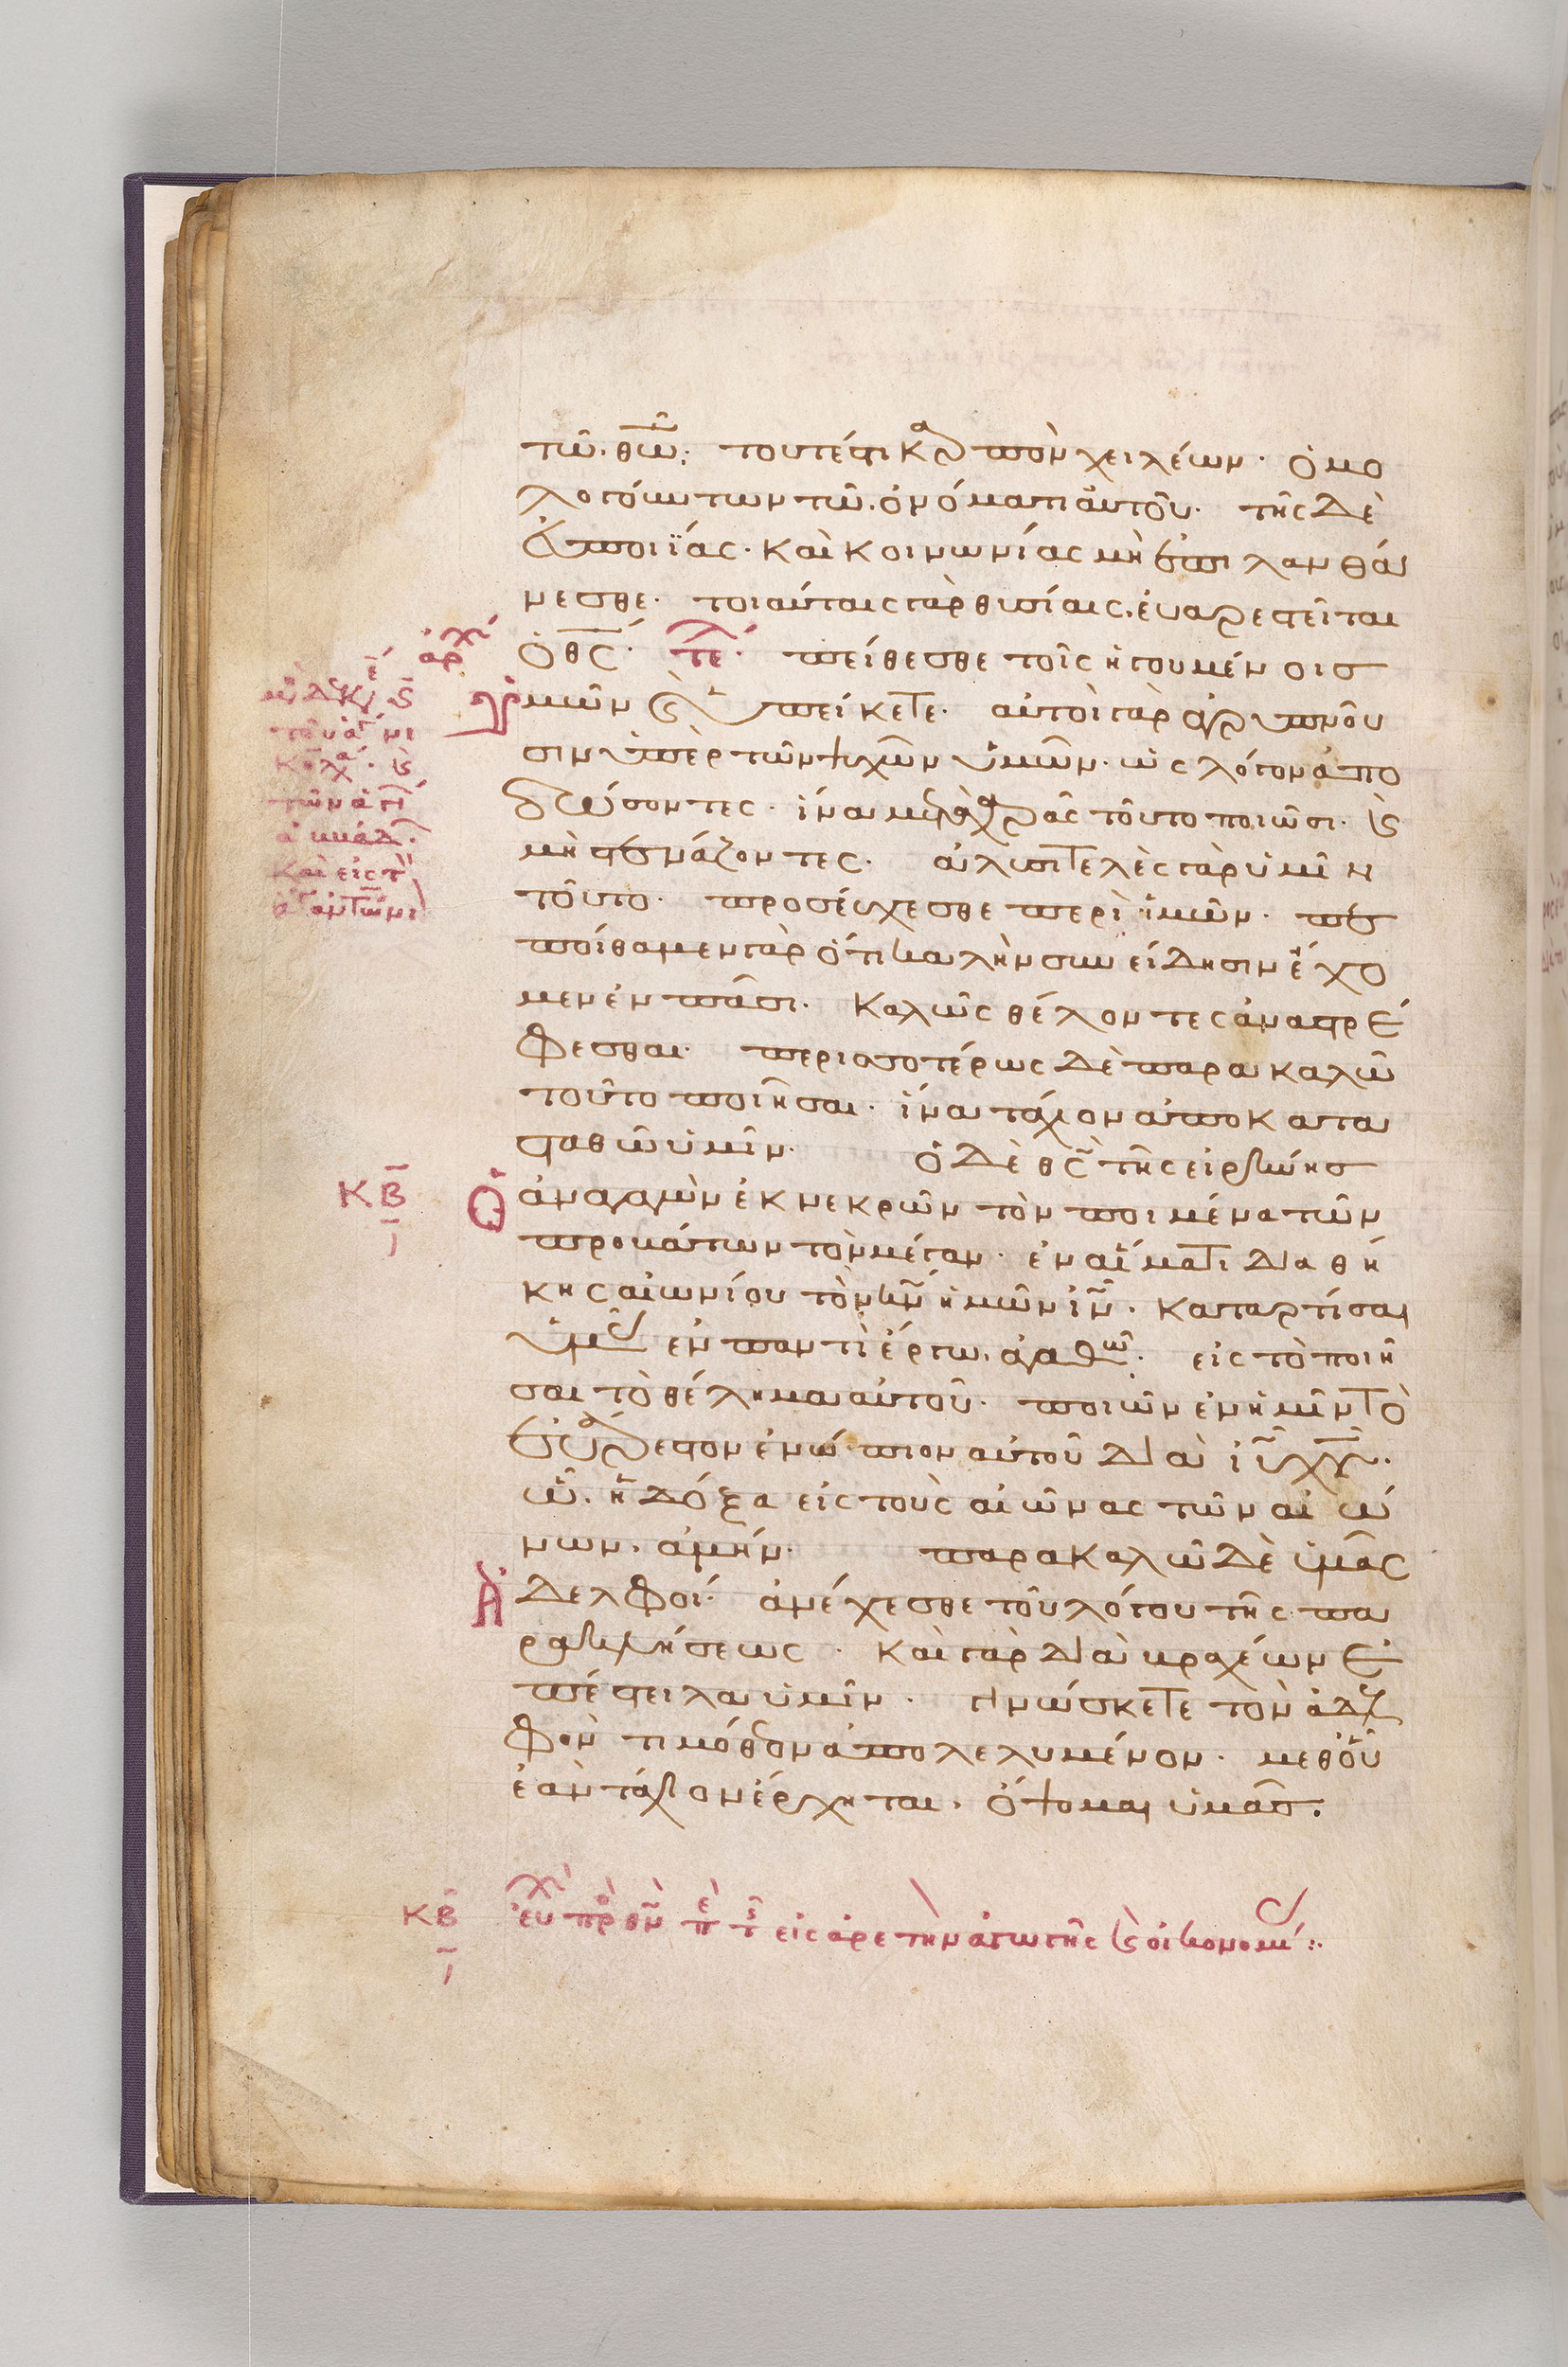 τῶ θῶ· τουτέστι καρπὸν χειλέων· ὁμο
λογούντων τῶ ὀνόματι αὐτοῦ· τῆς δὲ
εὐποιΐας· καὶ κοινωνίας μὴ ἐπιλανθά
νεσθε· τοιαύταις γὰρ θυσίαις, εὐαρεστεῖται
ὁ θς· τε· πείθεσθε τοῖς ἡγουμένοις
ἀρχ
ὑμῶν καὶ ὑπείκετε· αὐτοὶ γὰρ ἀγρυπνοῦ
σιν ὑπὲρ τῶν ψυχῶν ὑμῶν· ὡς λόγον ἀπο
δώσοντες· ἵνα μετὰ χαρᾶς τοῦτο ποιῶσι· καὶ
μὴ στενάζοντες· ἀλυσιτελὲς γὰρ ὑμῖν
τοῦτο· προσεύχεσθε περὶ ἡμῶν· πε
ποίθαμεν γὰρ ὅτι καλὴν συνείδησιν ἔχο
μεν ἐν πᾶσι· καλῶς θέλοντες ἀναστρέ
φεσθαι· περισσοτέρως δὲ παρακαλῶ
τοῦτο ποιῆσαι· ἵνα τάχιον ἀποκατα
σταθῶ ὑμῖν· ὁ δὲ θς τῆς εἰρήνης
ΚΒ
Ο ἀναγαγὼν ἐκ νεκρῶν τὸν ποιμένα τῶν
προβάτων τὸν μέγαν· ἐν αἵματι διαθή
κης αἰωνίου τὸν κν ἡμῶν ιν· καταρτίσαι
ὑμᾶς ἐν παντὶ ἔργω ἀγαθῶ· εἰς τὸ ποιῆ
σαι τὸ θέλημα αὐτοῦ· ποιῶν ἐν ἡμῖν τὸ
εὐάρεστον ἐνώπιον αὐτοῦ διὰ ιυ χυ·
ὧ ἡ δόξα εἰς τοὺς αἰῶνας τῶν αἰώ
νων· ἀμήν· παρακαλῶ δὲ ὑμᾶς
Α δελφοί· ἀνέχεσθε τοῦ λόγου τῆς πα
ρακλήσεως· καὶ γὰρ διὰ βραχέων ἐ
πέστειλα ὑμῖν· γινώσκετε τὸν ἀδελ
φὸν τιμόθεον ἀπολελυμένον· μεθ οὗ
ἐὰν τάχιον ἔρχηται, ὄψομαι ὑμᾶς.
ΚΒ εὐχὴ πρὸς θν εἰς ἀρετὴν ἀγωγῆς καὶ οἰκονομ